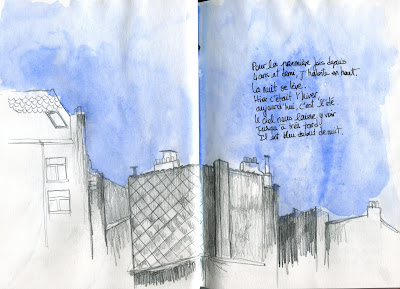 Pour la première fois depuis
4 ans et demi, j'habite en haut.
La nuit se lève..
Hier c'était l'hiver,
aujourd'hui, c'est l'été
le ciel nous laisse y voir
jusqu'à très tard!
Il est bleu de nuit.